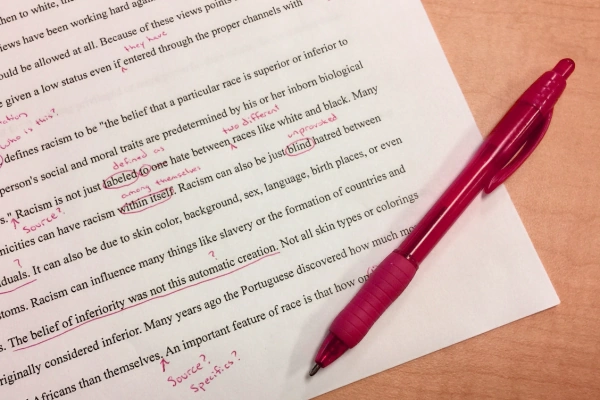 then to white, the
views have been working hard again
ould be allowed at all. Because of these views points
they have
e given a low status even if entered through the proper channels with
Who is this?
defines racism to be "the belief that a particular race is superior or inferior to
person's social and moral traits are predetermined by his or her inborn biological
defined as
two different
unprovoked
s." Racism is not just labeled to one hate between races like white and black. Many
Source?
among themselves
nicities can have racism within itself. Racism can also be just blind hatred between
?
duals. It can also be due to skin color, background, sex, language, birth places, or even
stoms. Racism can influence many things like slavery or the formation of countries and
?
s. The belief of inferiority was not this automatic creation. Not all skin types or colorings
riginally considered inferior. Many years ago the Portuguese discovered how much mo
d Africans than themselves. An important feature of race is that how on
Source?
Specifics?